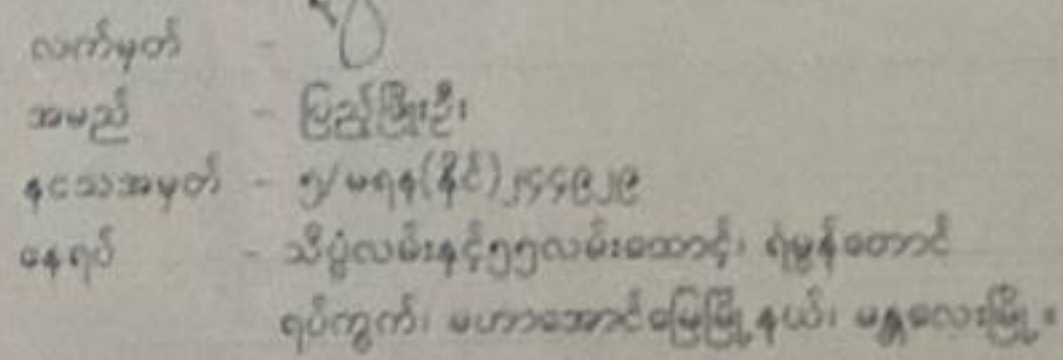 လက်မှတ် -
အမည် - ပြည့်ဖြိုးဦး
နငသအမှတ် - ၅/မရန(နိုင်)၂၄၄၉၂၉
နေရပ် - သိပ္ပံလမ်းနှင့်၅၅လမ်းထောင့်၊ ရံမွန်တောင်
ရပ်ကွက်၊ မဟာအောင်မြေမြို့နယ်၊ မန္တလေးမြို့။